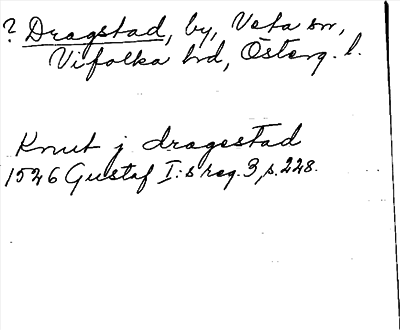 ? Dragstad, by, Veta sn,
Vifolka hd, Österg. l.
Knut j dragestad
1526 Gustaf I:s reg. 3, s. 228.